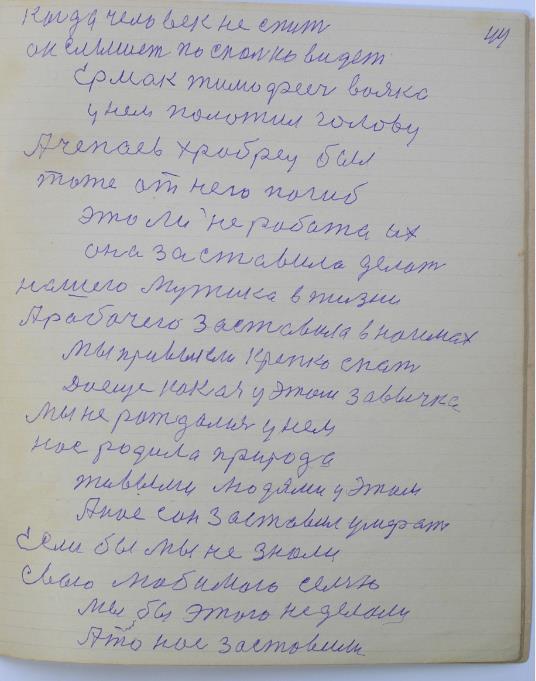 44
Когда человек не спит
он слышет по сполнь видет
Ермак тимофееч вояка
у нем положил голову
А чепаев храбрец был
тоже от него погиб
это ли не работа их
она заставила делат
нашего Мужика в жизни
А рабочего заставила в
Мы привыкли крепко спат
Да еще какая у этом завычка
Мы не рождалися у нем
нас родила природа
живыми людями у этом
А нас сон заставил умират
Если бы мы не знали
свою любимою семью
мы бы этого не делали
А то нас заставили